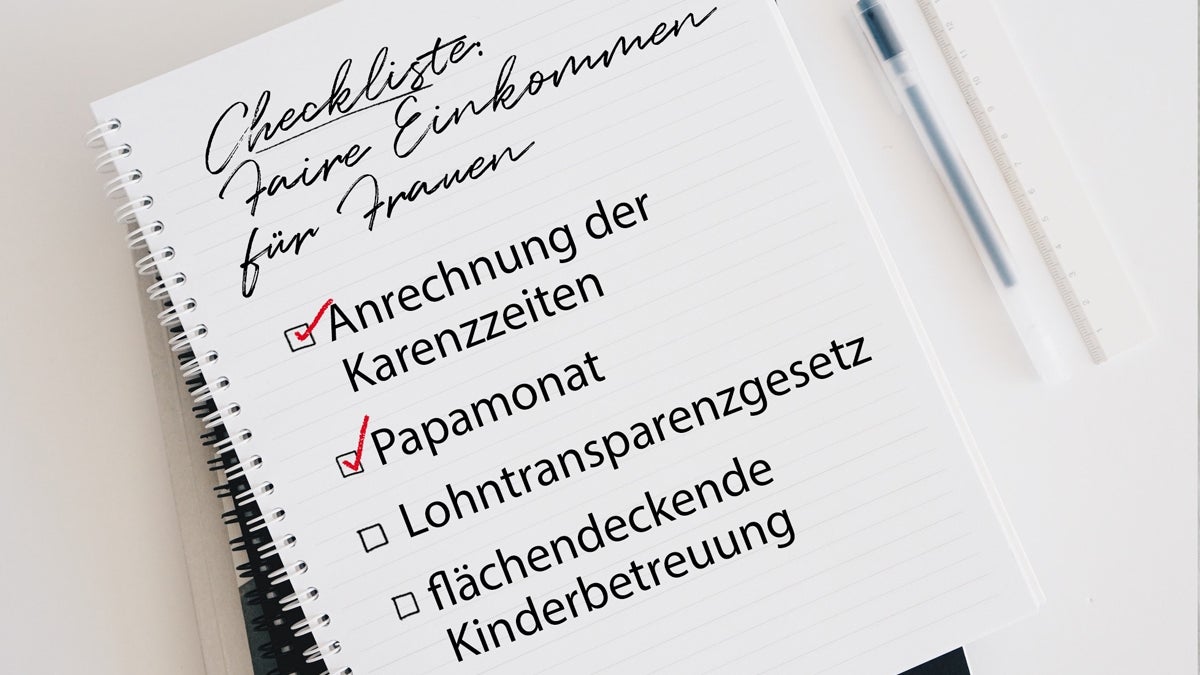 Checkliste:
Faire Einkommen
für Frauen
Anrechnung der
Karenzzeiten
Papamonat
Lohntransparenzgesetz
flächendeckende
Kinderbetreuung
12
11
10
9
8
7
6
5
4
3
2
1